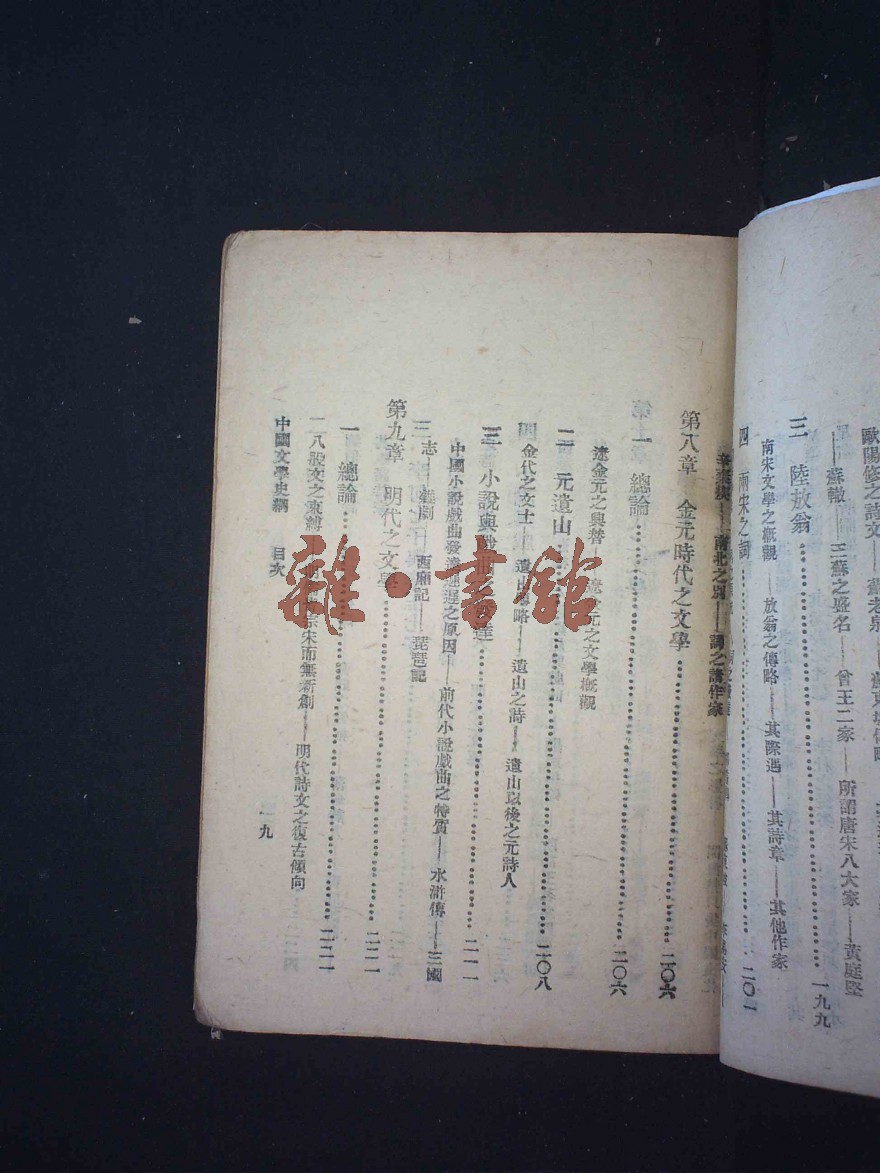 歐陽修之詩文——蘇老泉——蘇東坡傳略
——蘇轍——三蘇之盛名——曾王二家——所謂唐宋八大家——黃庭堅
三 陸放翁 一九九
南宋文學之概觀——放翁之傳略——其際遇——其詩章——其他作家
四 兩宋之詞 二〇一
南北之別——詞之諸作家
第八章 金元時代之文學 二〇六
一 總論 二〇六
遼金元之興替——遼金元之文學概觀
二 元遺山 二〇八
金代之文士——遺山傳略——遺山之詩——遺山以後之元詩人
三 小說與戲曲之發達 二一一
中國小說戲曲發達遲遲之原因——前代小說戲曲之特質——水滸傳——三國
志——雜劇——西廂記——琵琶記
第九章 明代之文學 二二一
一 總論 二二一
八股文之束縛——宗宋而無新創——明代詩文之復古傾向
中國文學史綱 目次
一九
雜·書館